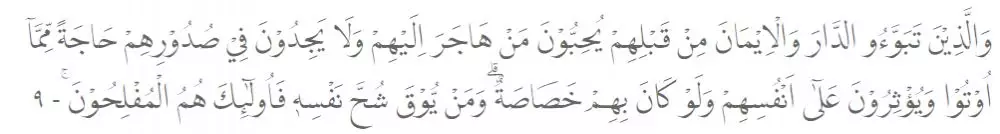 وَالَّذِيْنَ تَبَوَّءُو الدَّارَ وَالْاِيْمَانَ مِنْ قَبْلِهِمْ يُحِبُّوْنَ مَنْ هَاجَرَ اِلَيْهِمْ وَلَا يَجِدُوْنَ فِيْ صُدُوْرِهِمْ حَاجَةً مِّمَّآ
اُوْتُوْا وَيُؤْثِرُوْنَ عَلٰٓى اَنْفُسِهِمْ وَلَوْ كَانَ بِهِمْ خَصَاصَةٌ ۗوَمَنْ يُّوْقَ شُحَّ نَفْسِهٖ فَاُولٰۤىِٕكَ هُمُ الْمُفْلِحُوْنَۚ - ٩